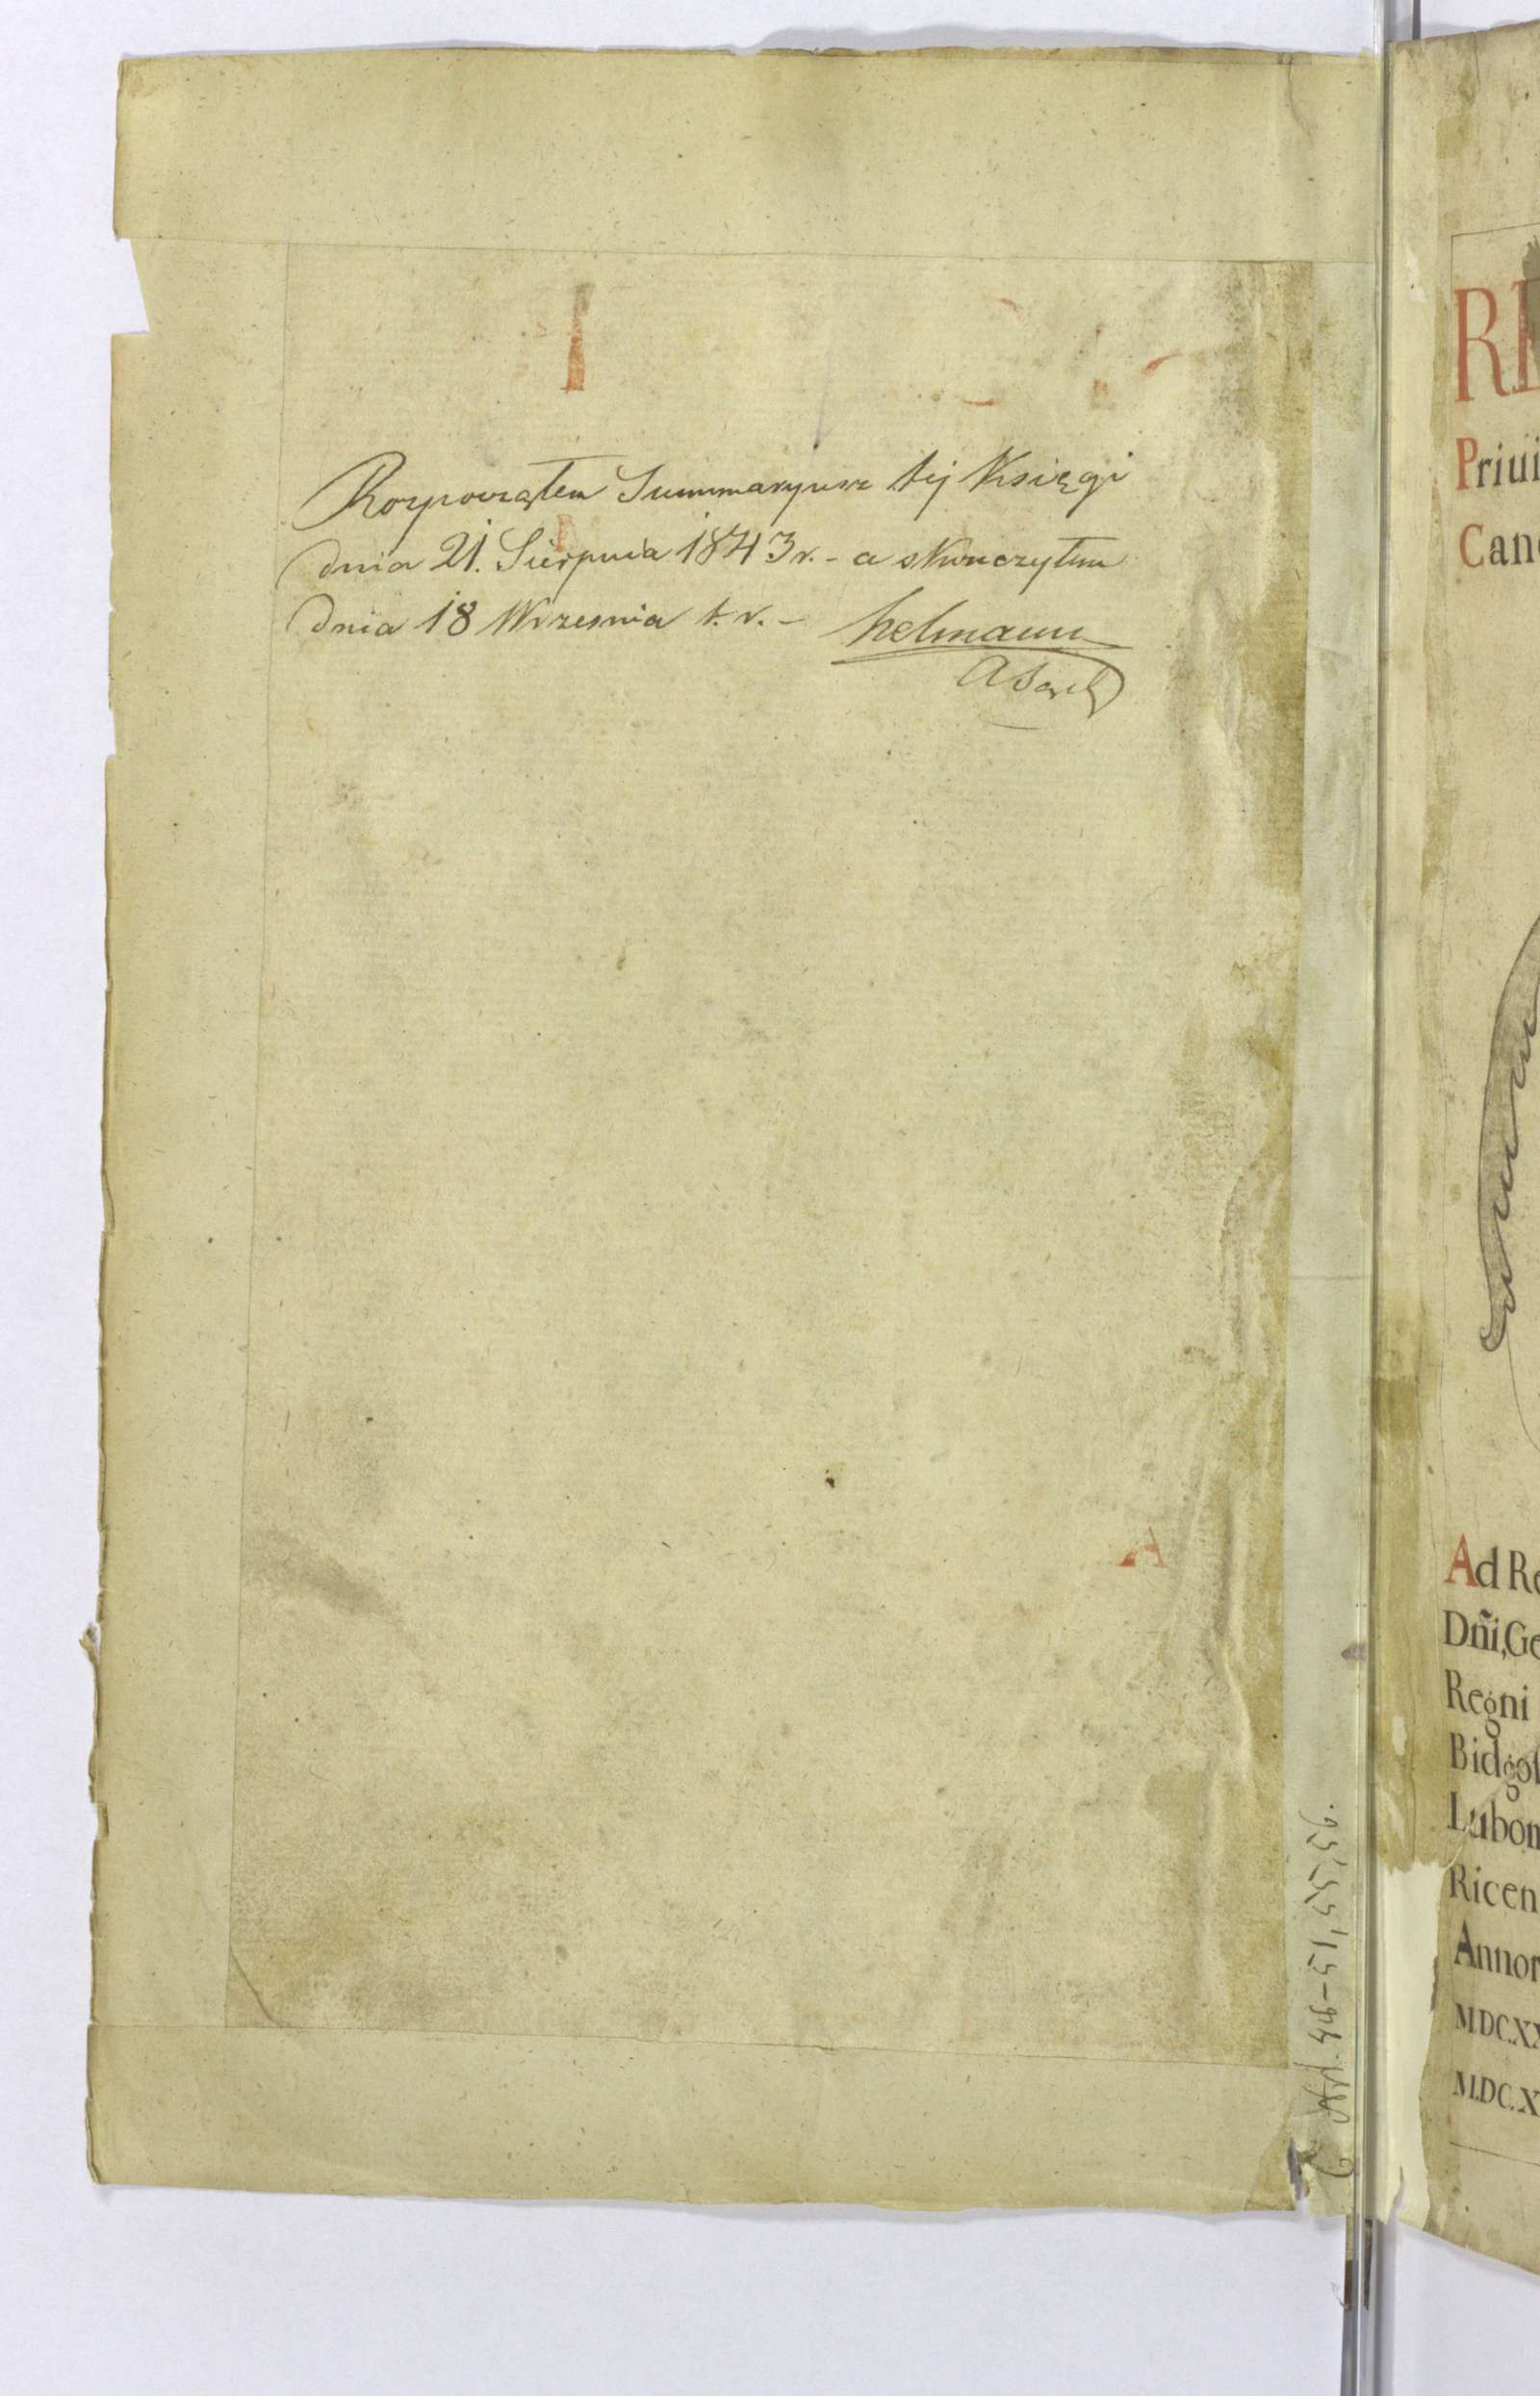 Rozpocząłem Summaryusz tej Księgi
dnia 21. Sierpnia 1843 r. - a skończyłem
dnia 18 Września t. r. -
helmann
A
48-51, 55, 56.
RE
Priui
Canc
Ad Re
Dñi, Ge
Regni
Bidgos
Lubom
Ricen
Annor
MDC.XX
M.DC.X